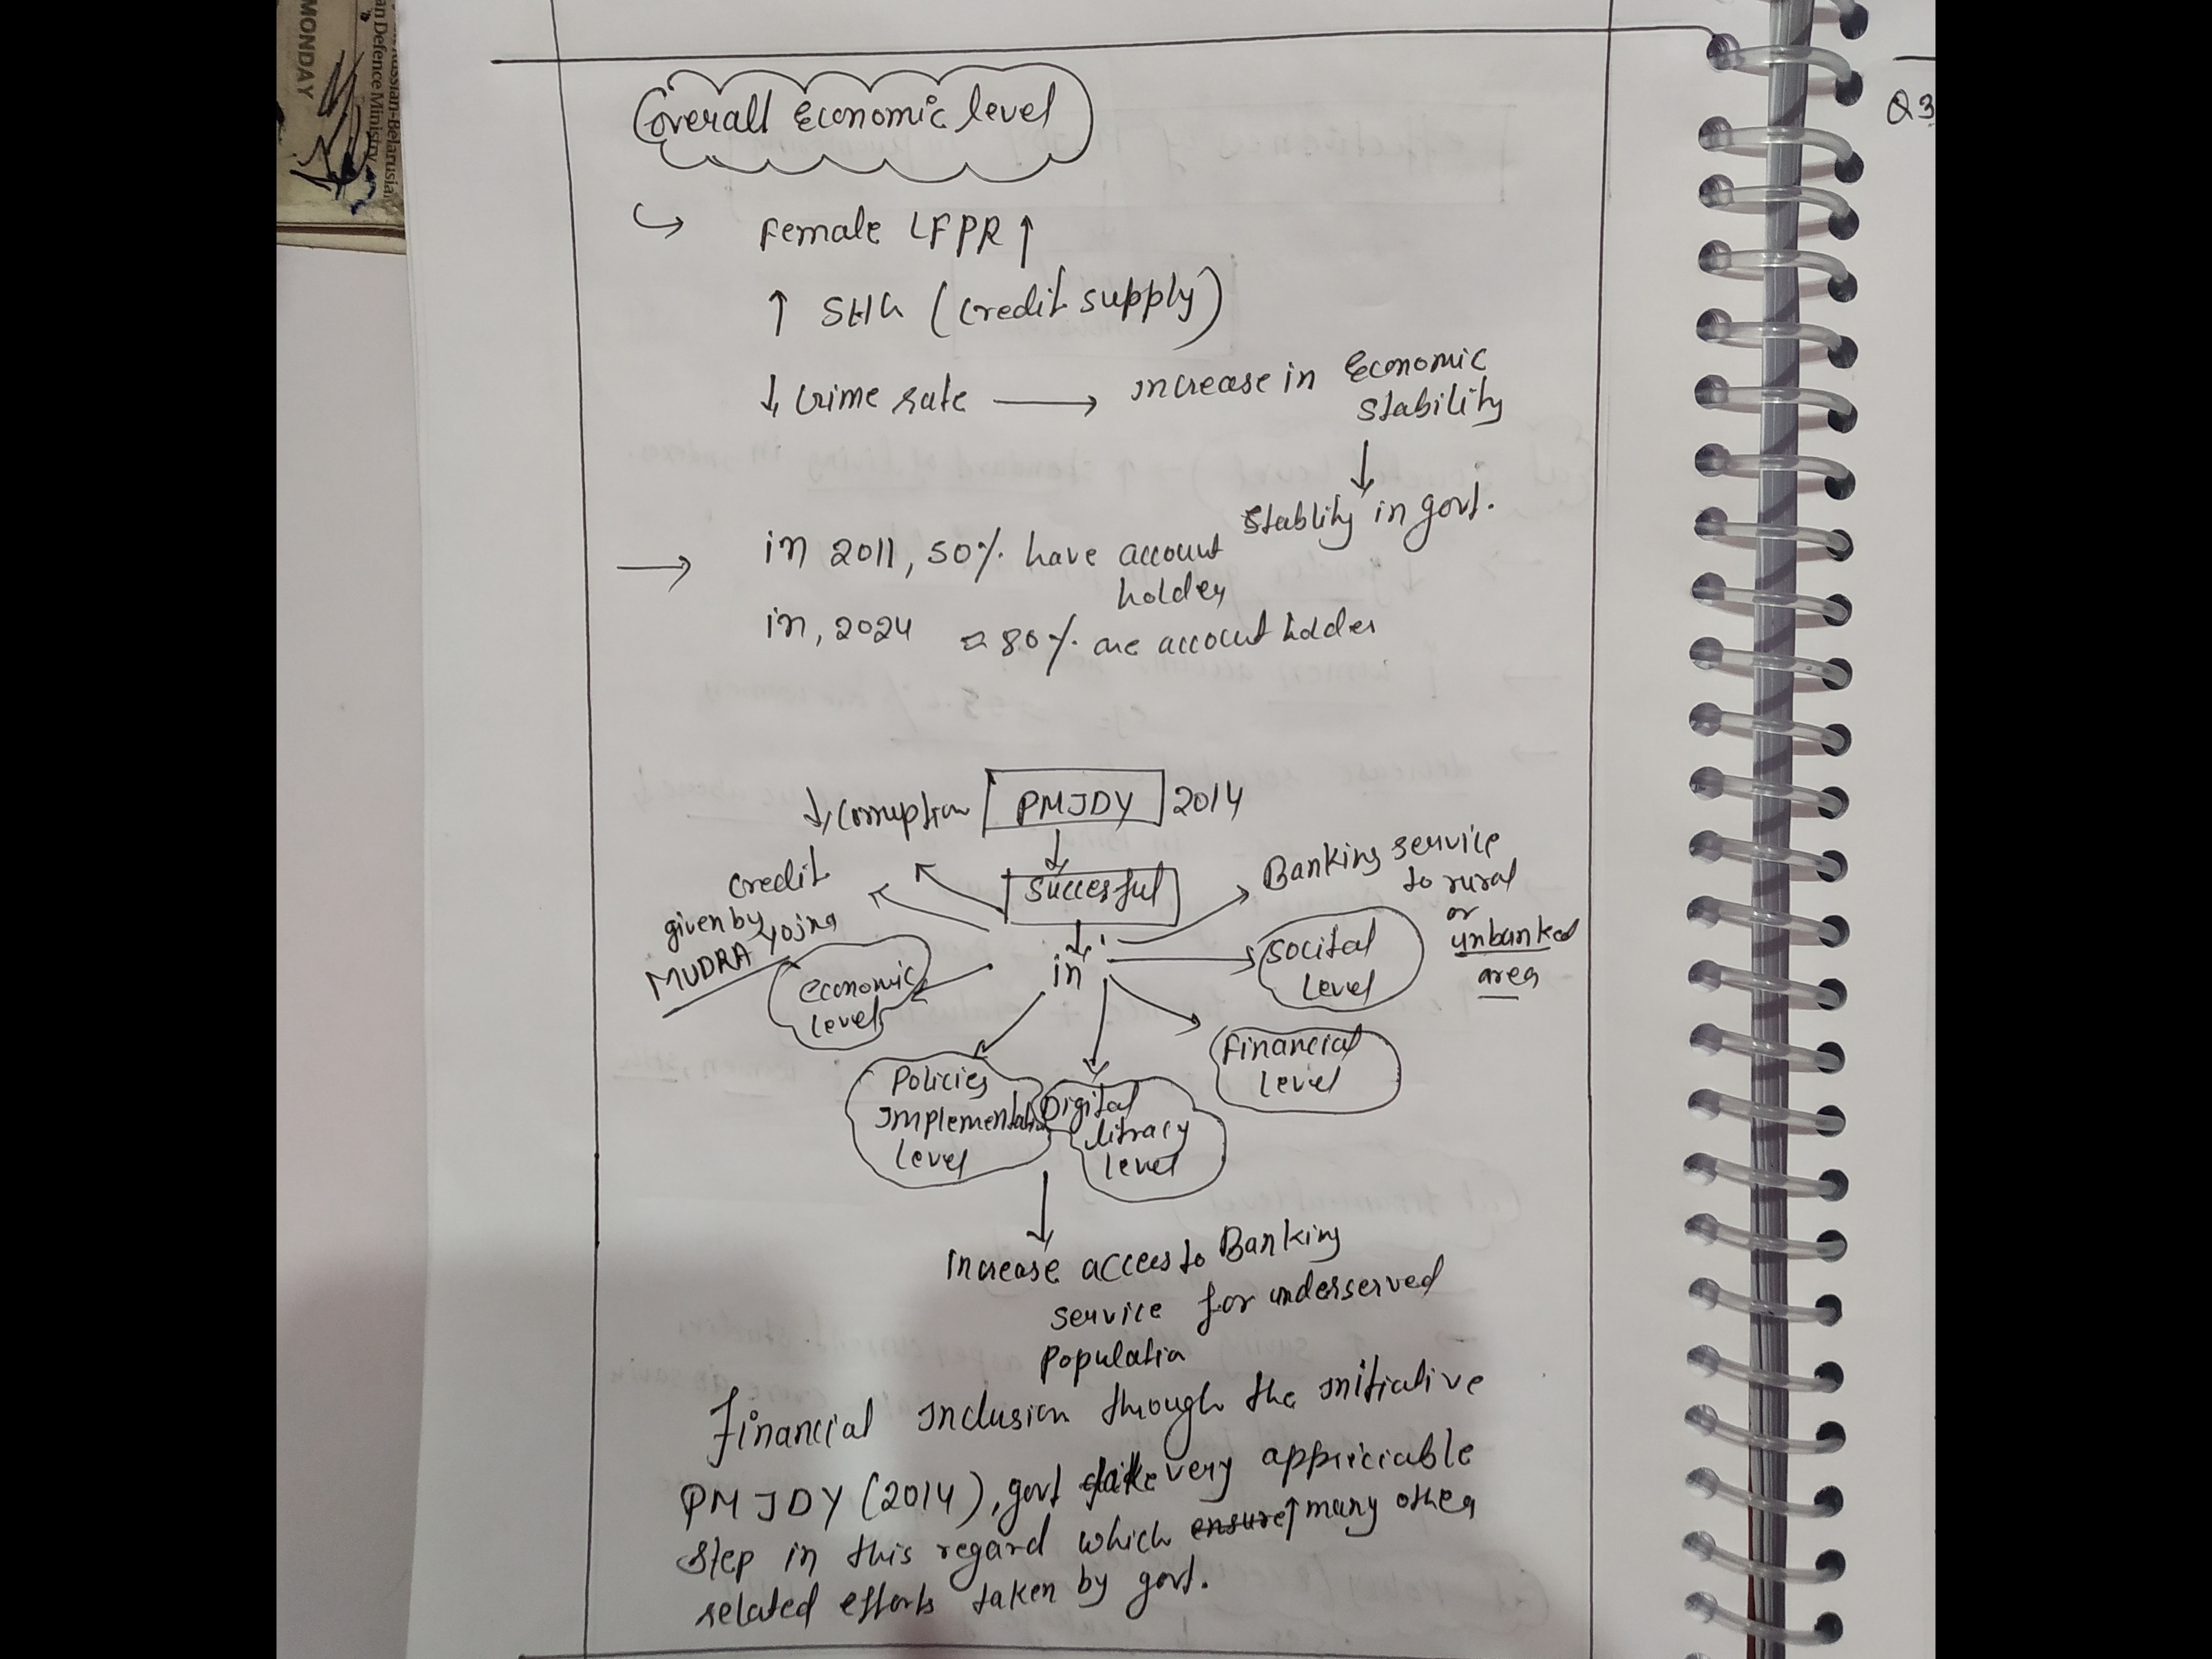 MONDAY
Russian-Belarusian
an Defence Ministry
Q3
Overall Economic level
Female LFPR ↑
↑ SHG (credit supply)
↓ crime rate → increase in Economic
stability
↓
Stablity in govt.
→ in 2011, 50% have account
holder
in, 2024 ≈ 80% are account holder
↓ Corruption PMJDY 2014
↓
Succesful
↓
in
Credit
given by
MUDRA Yojna
Banking service
to rural
or
unbanked
area
Economic
level
Socital
Level
Financial
level
Policies
Implementation
level
Digital
litracy
level
↓
Increase access to Banking
service for underserved
Population
Financial Inclusion through the initiative
PMJDY (2014), govt take very appriciable
step in this regard which ensure ↑ many other
related efforts taken by govt.